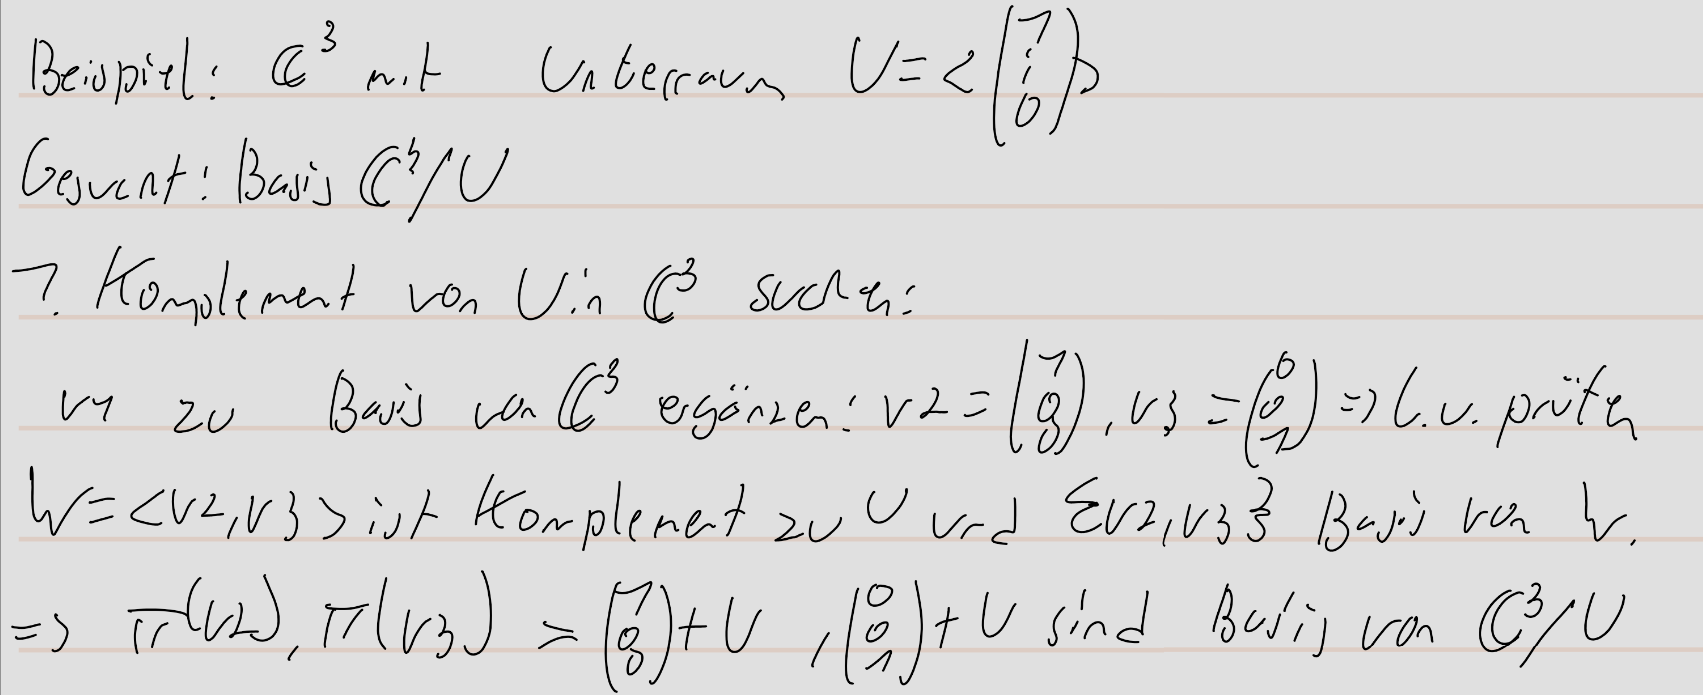 Beispiel: ℂ³ mit Unterraum U = < (1 i 0) >
Gesucht: Basis ℂ³/U
1. Komplement von U in ℂ³ suchen:
v1 zu Basis von ℂ³ ergänzen: v2 = (1 0 0), v3 = (0 0 1) => l.u. prüfen
W = <v2, v3> ist Komplement zu U und {v2, v3} Basis von W.
=> π(v2), π(v3) = (1 0 0) + U, (0 0 1) + U sind Basis von ℂ³/U